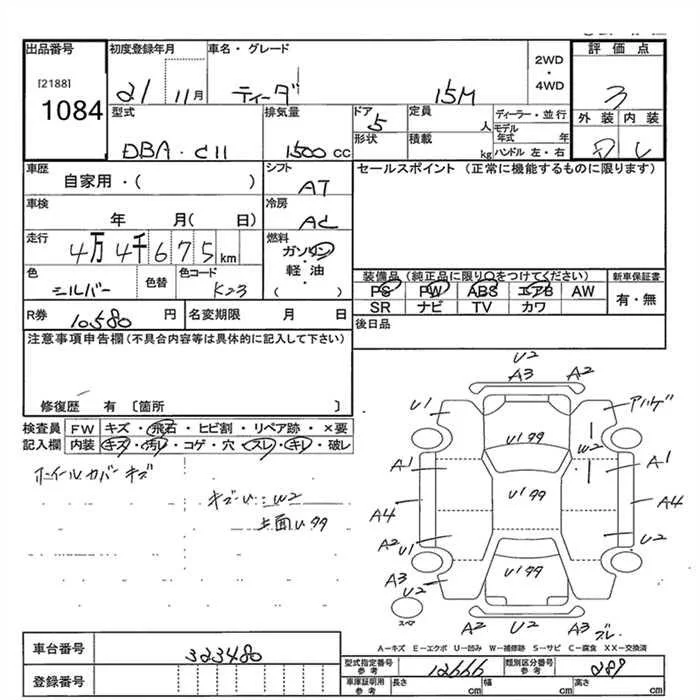 出品番号 初度登録年月 車名・グレード 2WD・4WD 評価点
[2188]
1084
21 11月 ティーダ 15M 3
型式 排気量 ドア 定員 ディーラー・並行 外装 内装
DBA・C11 1500cc 5 人 モデル年式 年
形状 積載 kg ハンドル 左・右
車歴 シフト セールスポイント (正常に機能するものに限ります)
自家用・( ) AT
車検 冷房
年 月( 日) AC
走行 燃料
4万4千675km ガソリン・軽油
( )
色 色替 色コード 装備品 (純正品に限り○をつけてください) 新車保証書
シルバー K23 PS PW ABS エアB AW 有・無
SR ナビ TV カワ
R券 10580円 名変期限 月 日 後日品
注意事項申告欄 (不具合内容等は具体的に記入して下さい)
修復歴 有 〔箇所 〕
検査員 FW キズ・飛石・ヒビ割・リペア跡・×要
記入欄 内装 キズ・汚レ・コゲ・穴・スレ・キレ・破レ
ホイールカバーキズ
W2
U2
A3 A2
U1
U1
A1 W2 A1
A4 A4
A2 U1 U2
A3
U2
スペア
A2 U2 A3
A－キズ E－エクボ U－凹み W－補修跡 S－サビ C－腐食 XX－交換済
車台番号 323480
登録番号
型式指定番号 参考 12666 類別区分番号 参考 289
車庫証明用 参考 長さ cm 幅 cm 高さ cm